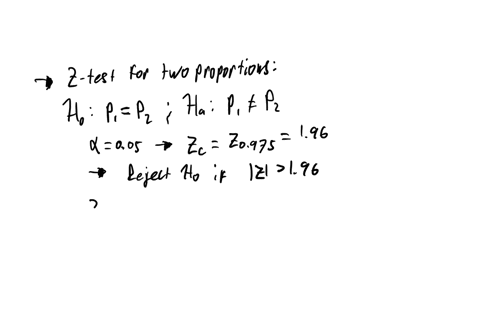 → Z-test for two proportions:
H₀: P₁ = P₂ ; Hₐ: P₁ ≠ P₂
α = 0.05 → Z_c = Z_0.975 = 1.96
→ Reject H₀ if |Z| > 1.96